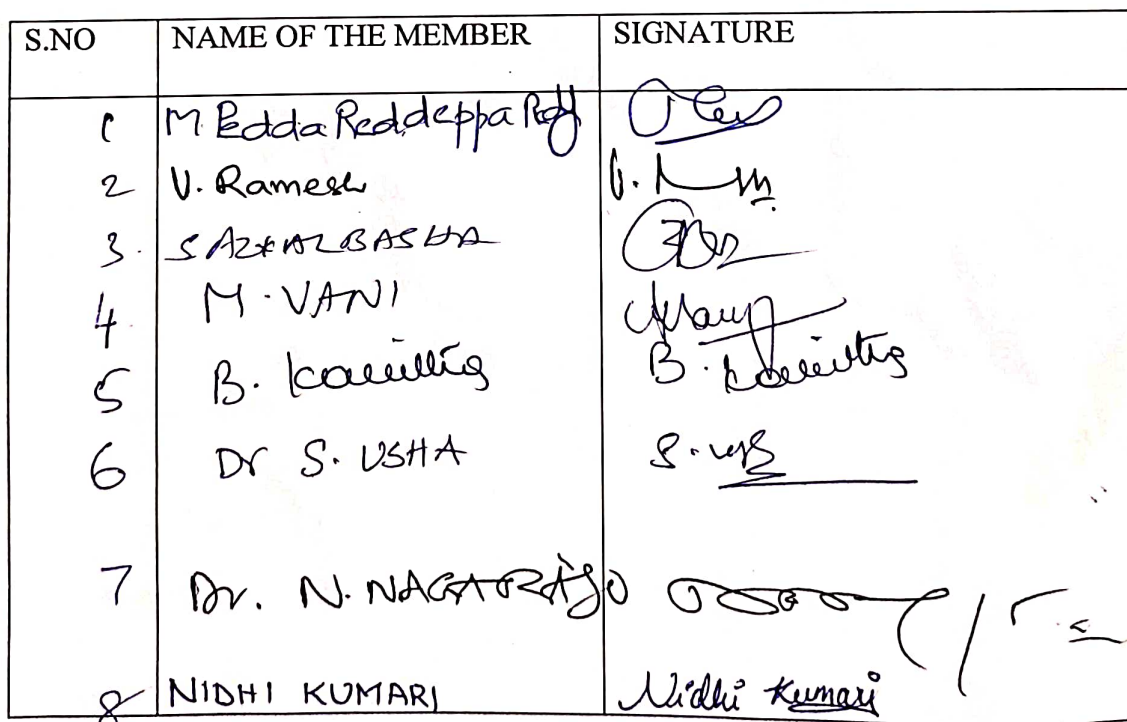 S.NO NAME OF THE MEMBER SIGNATURE
1 M Pedda Reddeppa Reddy
2 V. Ramesh V.
3. S AZXAL BASHA
4 M. VANI
5 B. B.
6 Dr S. USHA S.
7 Dr. N. NAGARAJU
8 NIDHI KUMARI Nidhi Kumari